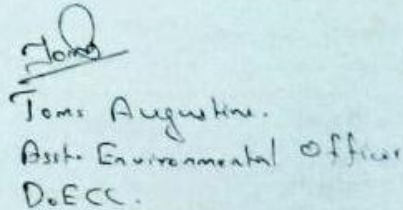 Toms
Toms Augustine.
Asst. Environmental Officer
DoECC.